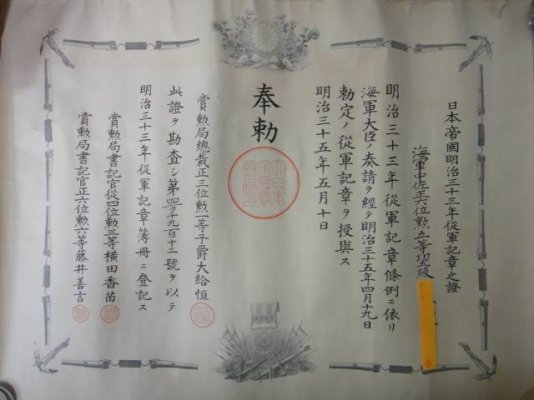 日本帝國明治三十三年従軍記章之證
海軍中佐正六位勲五等功五級
明治三十三年従軍記章條例ニ依リ
海軍大臣ノ奏請ヲ經テ明治三十五年四月十九日
勅定ノ従軍記章ヲ授與ス
明治三十五年五月十日
奉勅
賞勲局總裁正三位勲一等子爵大給恒
此證ヲ勘査シ第四千九百十二號ヲ以テ
明治三十三年従軍記章簿冊ニ登記ス
賞勲局書記官従四位勲三等横田香苗
賞勲局書記官正六位勲六等藤井善言